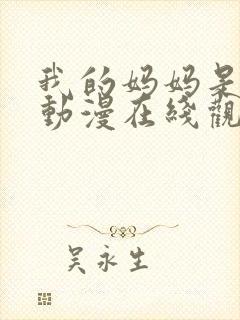 我的妈妈是
動漫在綫觀
吴永生